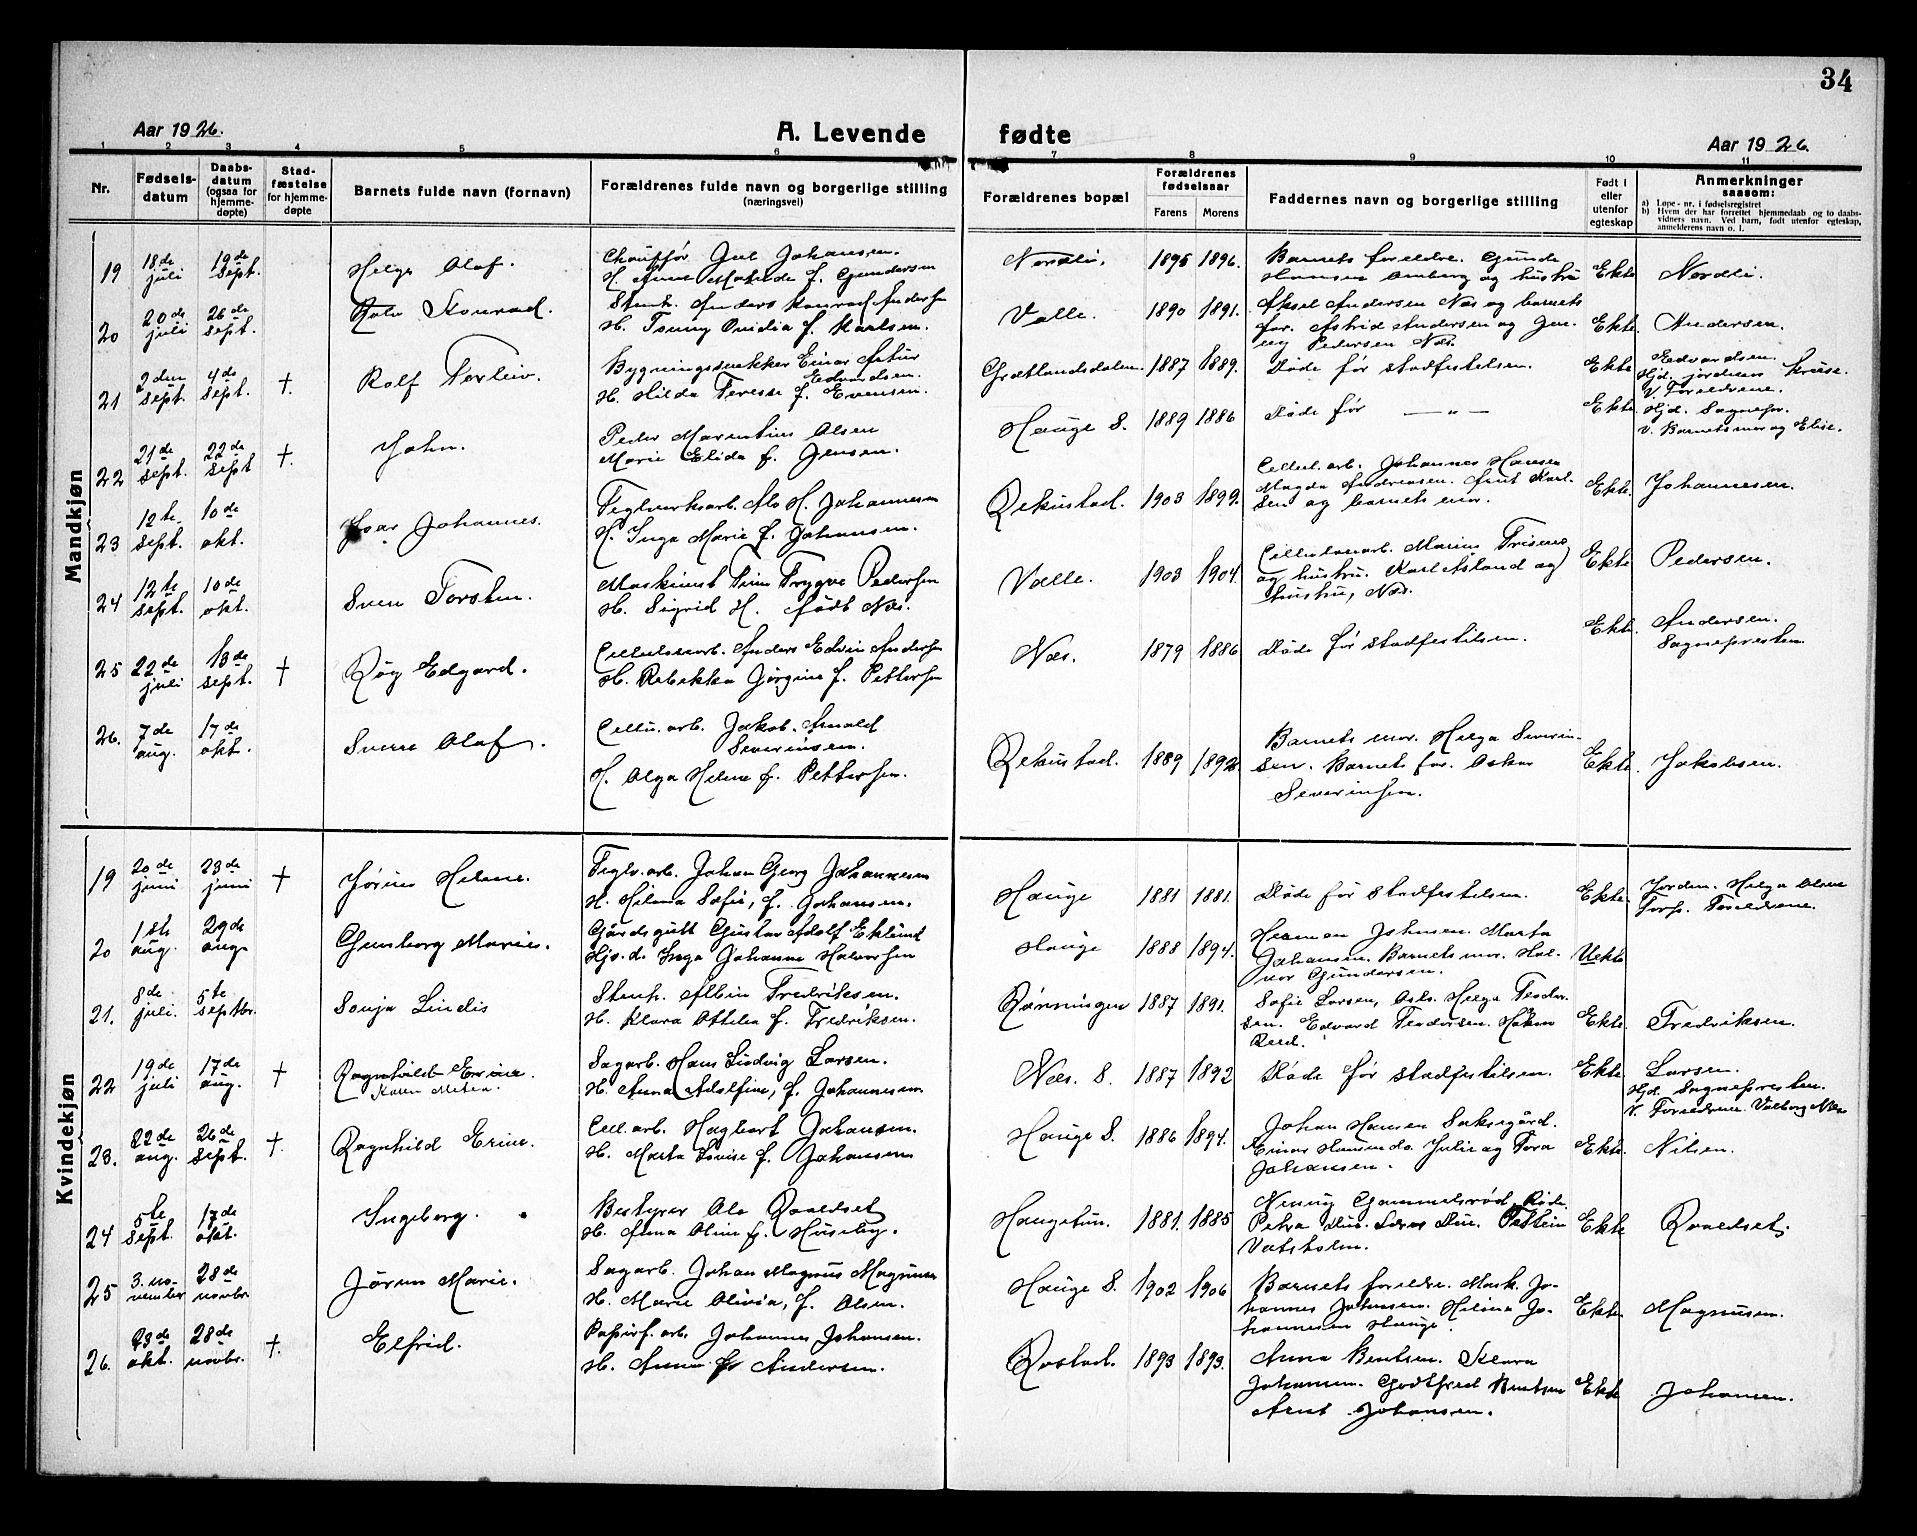 34
Aar 1926.
A. Levende
fødte
Aar 1926.
1 2 3 4 5 6 7 8 9 10 11
Nr.
Fødsels-
datum
Daabs-
datum
(ogsaa for
hjemme-
døpte)
Stad-
fæstelse
for hjemme-
døpte
Barnets fulde navn (fornavn)
Forældrenes fulde navn og borgerlige stilling
(næringsvei)
Forældrenes bopæl
Forældrenes
fødselsaar
Farens Morens
Faddernes navn og borgerlige stilling
Født i
eller
utenfor
egteskap
Anmerkninger
saasom:
a) Løpe-nr. i fødselsregistret
b) Hvem der har forrettet hjemmedaab og to daabs-
vidners navn. Ved barn, født utenfor egteskap,
anmelderens navn o. l.
Mandkjøn
19
18de
juli
19de
sept.
Helge Olaf.
Chauffør Johansen.
H. Anne Matilde f. Gundersen
1895 1896.
Barnets foreldre. Gunde
Hansen og hustru
Ekte
20
20de
juli
26de
sept.
Stenh. Anders Konrad Andersen
H. Ovidia f. Karlsen.
Valle.
1890 1891.
Aksel Andersen Næs og barnets
far. Astrid Andersen og Jen-
ny Pedersen Næs.
Ekte.
Andersen.
21
2den
sept.
4de
sept.
†.
Rolf Terleiv.
Bygningssnekker Einar Artur
Edvardsen.
H. Hilda Teresse f. Evensen.
1887 1889.
Døde før stadfestelsen.
Ekte
Edvardsen.
Hjd. jordmor Kruse.
V. Foreldrene.
22
21de
sept.
22de
sept
†.
John.
Peder Marentius Olsen
Marie Elida f. Jensen.
Hauge S.
1889 1886
Døde før — " —
Ekte.
Hjd. Sognepr.
V. Barnets mor og Elise.
23
12te
sept.
10de
okt.
Ivar Johannes.
Teglverksarb. H. Johannesen
H. Inga Marie f. Johansen.
Rekustad.
1903 1899.
Cellul.arb. Johannes Hansen
Magda Andreasen. Arnt Karl-
sen og barnets mor.
Ekte.
Johannesen.
24
12te
sept.
10de
okt.
Sven Torsten.
Maskinist Trygve Pedersen
H. Sigrid H. født Næs.
Valle.
1903 1904.
Cellulosearb. Marius
og hustru. og
hustru, Næs.
Ekte
Pedersen.
25
22de
juli
13de
sept.
†
Røy Edgard.
Cellulosearb. Anders Edvin Andersen
H. Rebekka Jørgine f. Pettersen
Næs.
1879 1886
Døde før stadfestelsen.
Ekte.
Andersen.
Sognepresten
26.
7de
aug.
17de
okt.
Sverre Olaf.
Cellu. arb. Jakob. Arnald
Severinsen.
H. Olga Helene f. Pettersen.
Rekustad.
1889 1892.
Barnets mor. Helga Severin-
sen. Barnets far. Oskar
Severinsen.
Ekte.
Jakobsen.
Kvindekjøn
19
20de
juni
23de
juni
†
Jørine Helene.
Teglv.arb. Johan Georg Johannesen
H. Hilma Sofie, f. Johansen.
Hauge
1881 1881.
Døde før stadfestelsen.
Ekte.
Jordm. Helga Olava
Torp. Foreldrene.
20
1ste
aug.
29de
aug.
Gunborg Marie.
Gårdsgutt Gustav Adolf Eklund
Hjv.d. Inga Johanne Halvorsen
Hauge
1888 1894.
Herman Johnsen. Marta
Johansen. Barnets mor. Hal-
vor Gundersen.
Uekte
21.
8de
juli.
5te
septbr.
Sonja Lindis
Stenh. Albin Fredriksen.
H. Klara Ottilia f. Fredriksen.
Rønningen
1887 1891.
Sofie Larsen, Oslo. Helga Teodor-
sen. Edvard Teodorsen. Håkon
Reed.
Ekte.
Fredriksen.
22
19de
juli
17de
aug.
†
Ragnhild Erine.
Sagarb. Hans Ludvig Larsen.
H. Anna Adolfine, f. Johannesen.
Næs. S.
1887 1892
Døde før stadfestelsen.
Ekte.
Larsen.
Hjd. Sognepresten.
V. Foreldrene. Valborg Næs
23.
22de
aug.
26de
sept.
†.
Ragnhild Erine.
Cell.arb. Hagbart Johansen.
H. Marta Lovise f. Johansen
Hauge S.
1886 1894.
Johan Hansen Saksegård.
Einar Hansen do. Julie og Tora
Johansen.
Ekte.
Nilsen.
24
5te
sept.
17de
okt.
Ingeborg.
Bestyrer Ole Roaldset
H. Anna Oline f. Huseby.
Haugetun.
1881. 1885
Gammelsrød, Råde.
Petra Due.
Vatsholm.
Ekte
Roaldset.
25
3. no-
vember
28de
novbr.
Jørun Marie.
Sagarb. Johan Magnus Magnusen
H. Marie Olivia, f. Olsen.
Hauge S.
1902 1906
Barnets foreldre. Mask. Jo-
hannes Johansen. Helina Jo-
hannesen Hauge.
Ekte.
Magnusen.
26.
23de
okt.
28de
novbr.
†.
Elfrid.
Papirf. arb. Johannes Johansen.
H. Anna f. Andersen.
Rostad.
1893 1893.
Anna Bentsen. Klara
Johansen. Godtfred Bentsen
Arnt Johansen.
Ekte
Johansen.